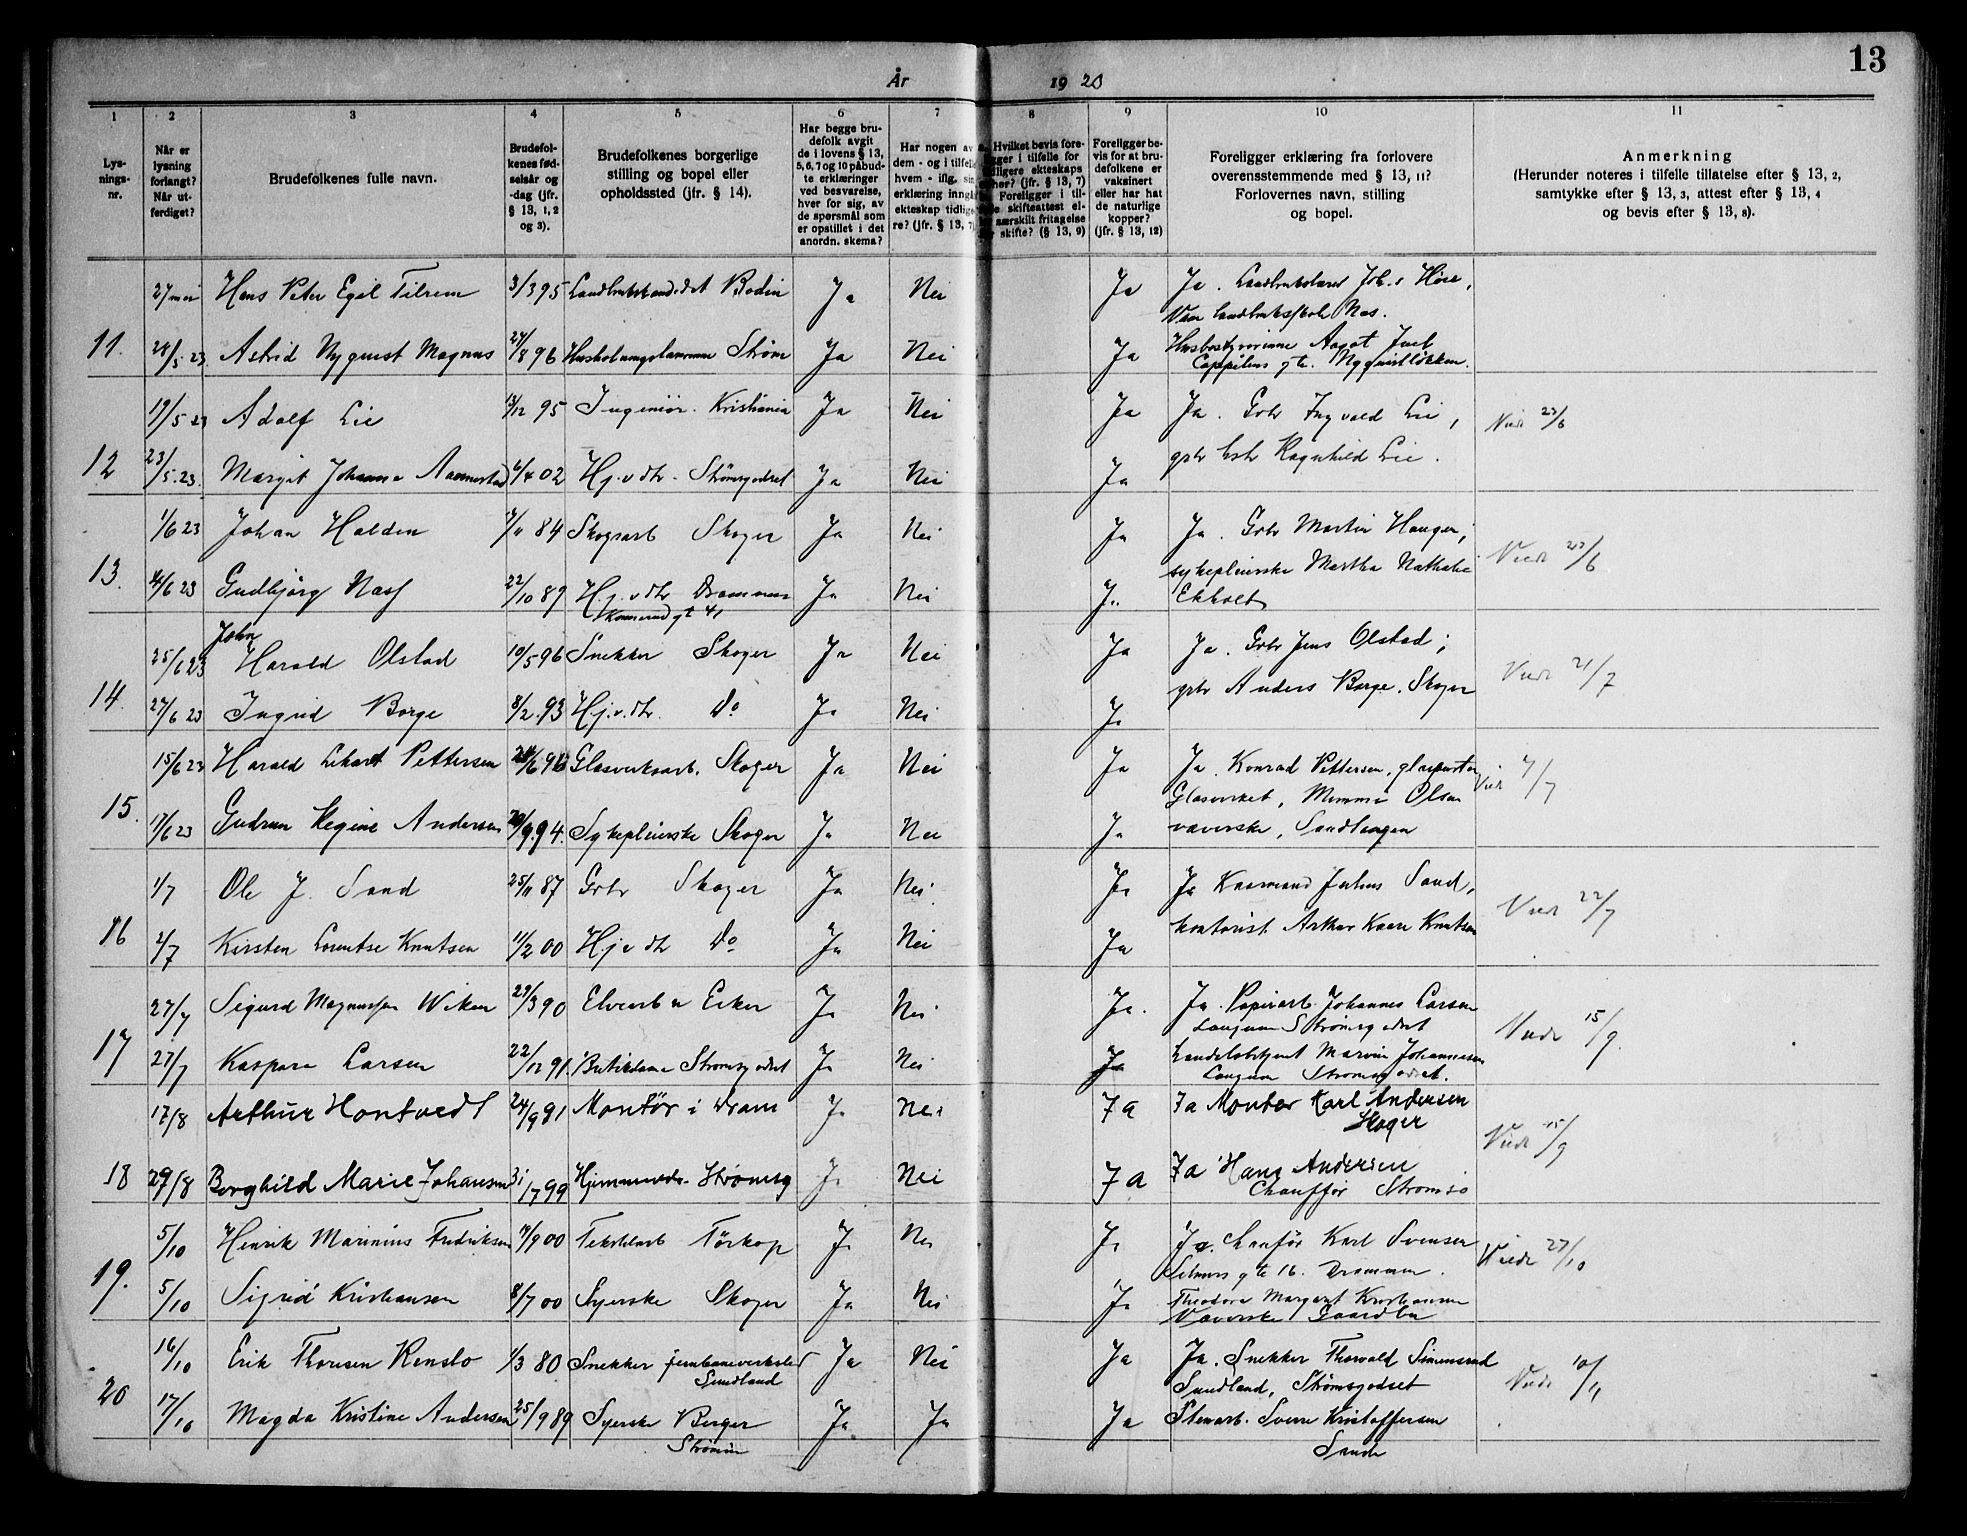 13
År 19 20
1 2 3 4 5 6 7 8 9 10 11
Lysningsnr.
Når er lysning forlangt? Når utferdiget?
Brudefolkenes fulle navn.
Brudefolkenes fødselsår og -dag (jfr. § 13, 1, 2 og 3).
Brudefolkenes borgerlige stilling og bopel eller opholdssted (jfr. § 14).
Har begge brudefolk avgit de i lovens § 13, 5, 6, 7 og 10 påbudte erklæringer ved besvarelse, hver for sig, av de spørsmål som er opstillet i det anordn. skema?
Har nogen av dem - og i tilfelle hvem - iflg. sin erklæring inngått ekteskap tidligere? (jfr. § 13, 7)
Hvilket bevis foreligger i tilfelle for tidligere ekteskaps (jfr. § 13, 7) Foreligger i tilfelle skifteattest el- særskilt fritagelse skifte? (§ 13, 9)
Foreligger bevis for at brudefolkene er vaksinert eller har hat de naturlige kopper? (jfr. § 13, 12)
Foreligger erklæring fra forlovere overensstemmende med § 13, 11? Forlovernes navn, stilling og bopel.
Anmerkning (Herunder noteres i tilfelle tillatelse efter § 13, 2, samtykke efter § 13, 3, attest efter § 13, 4 og bevis efter § 13, 8).
27 mai Hans Peter Egil Tilrem 3/3 95 Landbrukskandidat Bodin Ja Nei Ja Ja. Joh.s Høse,
landbruksskole Nes.
11. 28/5 23 Astrid Nyquist Magnus 24/8 96 Strøm Ja Nei Ja Husbestyrerinne Aagot Juel
Cappelens gte. Nyquistløkken.
19/5 23 Adolf Lie 13/12 95 Ingeniør. Kristiania Ja Nei Ja Ja. Gbr Ingvald Lie,
Viede 23/6
12 23/5.23. Margit Johanne 6/4 02 Hj.v.dtr. Strømsgodset Ja Nei Ja Ragnhild Lie.
1/6 23 Johan Halden 7/11 84 Skogsarb Skoger Ja Nei Ja Ja. Gbr Martin Hauger,
sykepleierske Martha Nathalie
Viede 23/6
13. 4/6 23 Gudbjørg Næss 22/10 89 Hj.v.dtr Drammen Ja Nei Ja Ekholt
Konnerud gt 41
John
25/6 23 Harald Olstad 10/5 96 Snekker Skoger Ja Nei Ja Ja. Gbr Jens Olstad;
gbr Anders Borge. Skoger
Viede 21/7
14. 27/6 23 Ingrid Borge 8/2.93 Hj.v.dtr. Do Ja Nei Ja
15/6 23 Harald Pettersen Glasverksarb. Skoger Ja Nei Ja Ja. Konrad Pettersen,
Glasverket, Mimmi Olsen
Viede 7/7
15. 17/6 23 Gudrun Regine Andersen 20/9.94. Sykepleierske Skoger Ja Nei Ja væverske,
1/7 Ole J. Sand 25/11 87 Gbr Skoger Ja Nei. Ja Ja Julius Sand,
Viede 22/7
16 2/7 Kirsten Lorentse Knutsen 11/2 00 Hj v dtr Do Ja Nei Ja kontorist Arthur Kaare Knutsen
27/7 Sigurd Magnussen Wiken 29/3 90 Elvearb Ø Eiker Ja Nei Ja. Ja. Papirarb. Johannes Larsen
Langum Strømsgodset
Viede 15/9.
17 27/7 Kaspara Larsen 22/12 91. Butikdame Strømsgodset Ja Nei Ja Handelsbetjent Marvin Johannessen
Langum Strømsgodset.
17/8 Arthur Hontvedt 24/9 81 Montør i Dram Ja Nei Ja Ja Montør Karl Andersen
Skoger
Viede 15/9
18 29/8 Borghild Marie Johansen 31/7 99 Strømsg Ja Nei Ja Ja Hans Andersen
Chauffør Strømsø
5/10 Henrik Marinius Fredriksen 7/9 00 Tekstilarb Tørkop Ja Nei Ja Ja. Chaufør Karl Svensen
gte 16. Drammen.
Viede 27/10
19. 5/10 Sigrid Kristiansen 8/7 00 Syerske Skoger Ja Nei Ja Theodora Margret Kristiansen
Væverske
16/10 Erik Thorsen Renslo 1/3 80 Snekker jernbaneverksted Ja Nei Ja Ja. Snekker Thorvald Simensrud
Sundland
Sundland, Strømsgodset
Viede 10/11
20 17/10 Magda Kristine Andersen 25/9 89 Syerske Berger Ja Ja Ja Stenarb. Sverre Kristoffersen
Strømm
Sande